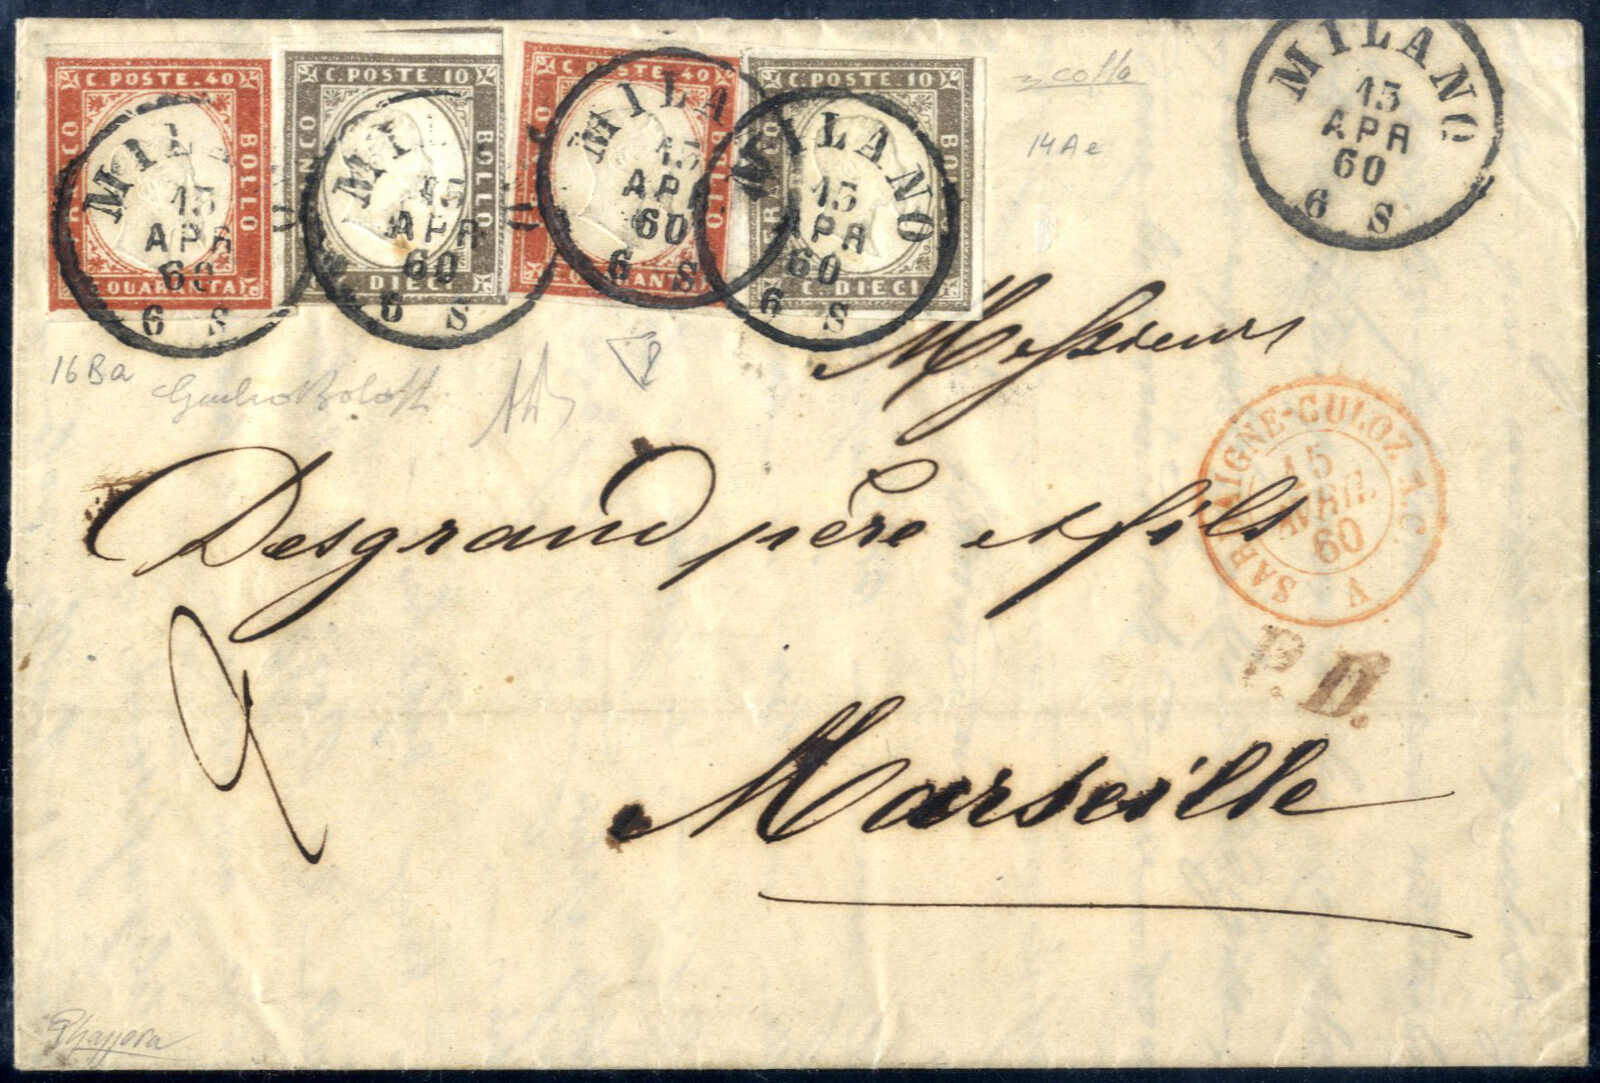 C. POSTE. 40
BOLLO
C. POSTE 10
FRANCO
BOLLO
C. DIECI
C. POSTE. 40
BOLLO
C. POSTE 10
C. DIECI
MIL
15
APR
60
6 S
MI
15
APR
60
6 S
MILA
15
AP
60
6 S
MILANO
15
APR
60
6 S
MILANO
15
APR
60
6 S
14Ae
16Ba
Messieurs
Desgrand père et fils
Marseille
SARDAIGNE-CULOZ A.C.
15
AVRIL
60
A
P.D.